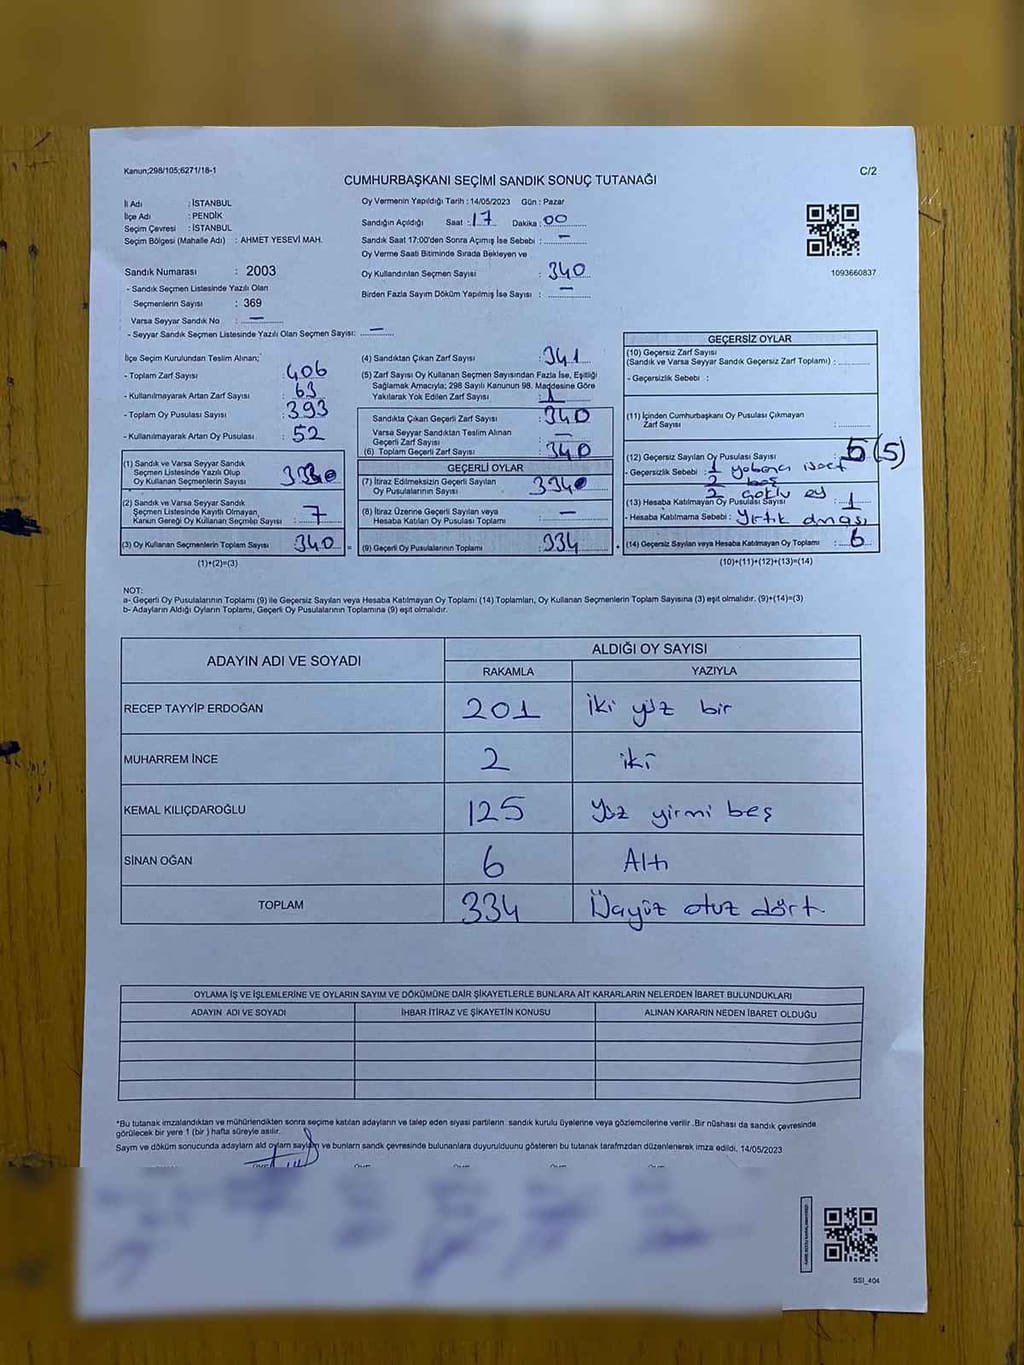 Kanun;298/105;6271/18-1
C/2
CUMHURBAŞKANI SEÇİMİ SANDIK SONUÇ TUTANAĞI
İl Adı : İSTANBUL
İlçe Adı : PENDİK
Seçim Çevresi : İSTANBUL
Seçim Bölgesi (Mahalle Adı) : AHMET YESEVİ MAH.
Sandık Numarası : 2003
- Sandık Seçmen Listesinde Yazılı Olan
Seçmenlerin Sayısı : 369
Varsa Seyyar Sandık No : —
- Seyyar Sandık Seçmen Listesinde Yazılı Olan Seçmen Sayısı: —
Oy Vermenin Yapıldığı Tarih : 14/05/2023 Gün : Pazar
Sandığın Açıldığı Saat : 17 Dakika : 00
Sandık Saat 17:00'den Sonra Açımış İse Sebebi : —
Oy Verme Saati Bitiminde Sırada Bekleyen ve
Oy Kullandırılan Seçmen Sayısı : 340
Birden Fazla Sayım Döküm Yapılmış İse Sayısı : —
1093660837
İlçe Seçim Kurulundan Teslim Alınan;
- Toplam Zarf Sayısı : 406
- Kullanılmayarak Artan Zarf Sayısı : 63
- Toplam Oy Pusulası Sayısı : 393
- Kullanılmayarak Artan Oy Pusulası : 52
(1) Sandık ve Varsa Seyyar Sandık
Seçmen Listesinde Yazılı Olup
Oy Kullanan Seçmenlerin Sayısı
(2) Sandık ve Varsa Seyyar Sandık
Seçmen Listesinde Kayıtlı Olmayan,
Kanun Gereği Oy Kullanan Seçmen Sayısı : 7
(3) Oy Kullanan Seçmenlerin Toplam Sayısı 340 =
(1)+(2)=(3)
(4) Sandıktan Çıkan Zarf Sayısı : 341
(5) Zarf Sayısı Oy Kullanan Seçmen Sayısından Fazla İse, Eşitliği
Sağlamak Amacıyla; 298 Sayılı Kanunun 98. Maddesine Göre
Yakılarak Yok Edilen Zarf Sayısı : 1
Sandıkta Çıkan Geçerli Zarf Sayısı : 340
Varsa Seyyar Sandıktan Teslim Alınan
Geçerli Zarf Sayısı : —
(6) Toplam Geçerli Zarf Sayısı : 340
GEÇERLİ OYLAR
(7) İtiraz Edilmeksizin Geçerli Sayılan
Oy Pusulalarının Sayısı : 334
(8) İtiraz Üzerine Geçerli Sayılan veya
Hesaba Katılan Oy Pusulası Toplamı : —
(9) Geçerli Oy Pusulalarının Toplamı : 334 +
GEÇERSİZ OYLAR
(10) Geçersiz Zarf Sayısı
(Sandık ve Varsa Seyyar Sandık Geçersiz Zarf Toplamı) :
- Geçersizlik Sebebi :
(11) İçinden Cumhurbaşkanı Oy Pusulası Çıkmayan
Zarf Sayısı :
(12) Geçersiz Sayılan Oy Pusulası Sayısı : 5 (5)
- Geçersizlik Sebebi : 1 yabancı işaret
2 boş
2 çoklu oy
(13) Hesaba Katılmayan Oy Pusulası Sayısı : 1
- Hesaba Katılmama Sebebi : Yırtık olması
(14) Geçersiz Sayılan veya Hesaba Katılmayan Oy Toplamı : 6
(10)+(11)+(12)+(13)=(14)
NOT:
a- Geçerli Oy Pusulalarının Toplamı (9) ile Geçersiz Sayılan veya Hesaba Katılmayan Oy Toplamı (14) Toplamları, Oy Kullanan Seçmenlerin Toplam Sayısına (3) eşit olmalıdır. (9)+(14)=(3)
b- Adayların Aldığı Oyların Toplamı, Geçerli Oy Pusulalarının Toplamına (9) eşit olmalıdır.
ADAYIN ADI VE SOYADI ALDIĞI OY SAYISI
RAKAMLA YAZIYLA
RECEP TAYYİP ERDOĞAN 201 iki yüz bir
MUHARREM İNCE 2 iki
KEMAL KILIÇDAROĞLU 125 Yüz yirmi beş
SİNAN OĞAN 6 Altı
TOPLAM 334 Üçyüz otuz dört
OYLAMA İŞ VE İŞLEMLERİNE VE OYLARIN SAYIM VE DÖKÜMÜNE DAİR ŞİKAYETLERLE BUNLARA AİT KARARLARIN NELERDEN İBARET BULUNDUKLARI
ADAYIN ADI VE SOYADI İHBAR İTİRAZ VE ŞİKAYETİN KONUSU ALINAN KARARIN NEDEN İBARET OLDUĞU
*Bu tutanak imzalandıktan ve mühürlendikten sonra seçime katılan adayların ve talep eden siyasi partilerin sandık kurulu üyelerine veya gözlemcilerine verilir .Bir nüshası da sandık çevresinde
görülecek bir yere 1 (bir ) hafta süreyle asılır.
Sayım ve döküm sonucunda adayların ald oyların sayıları ve bunların sandık çevresinde bulunanlara duyurulduunu gösteren bu tutanak tarafımzdan düzenlenerek imza edildi, 14/05/2023
SSI_404